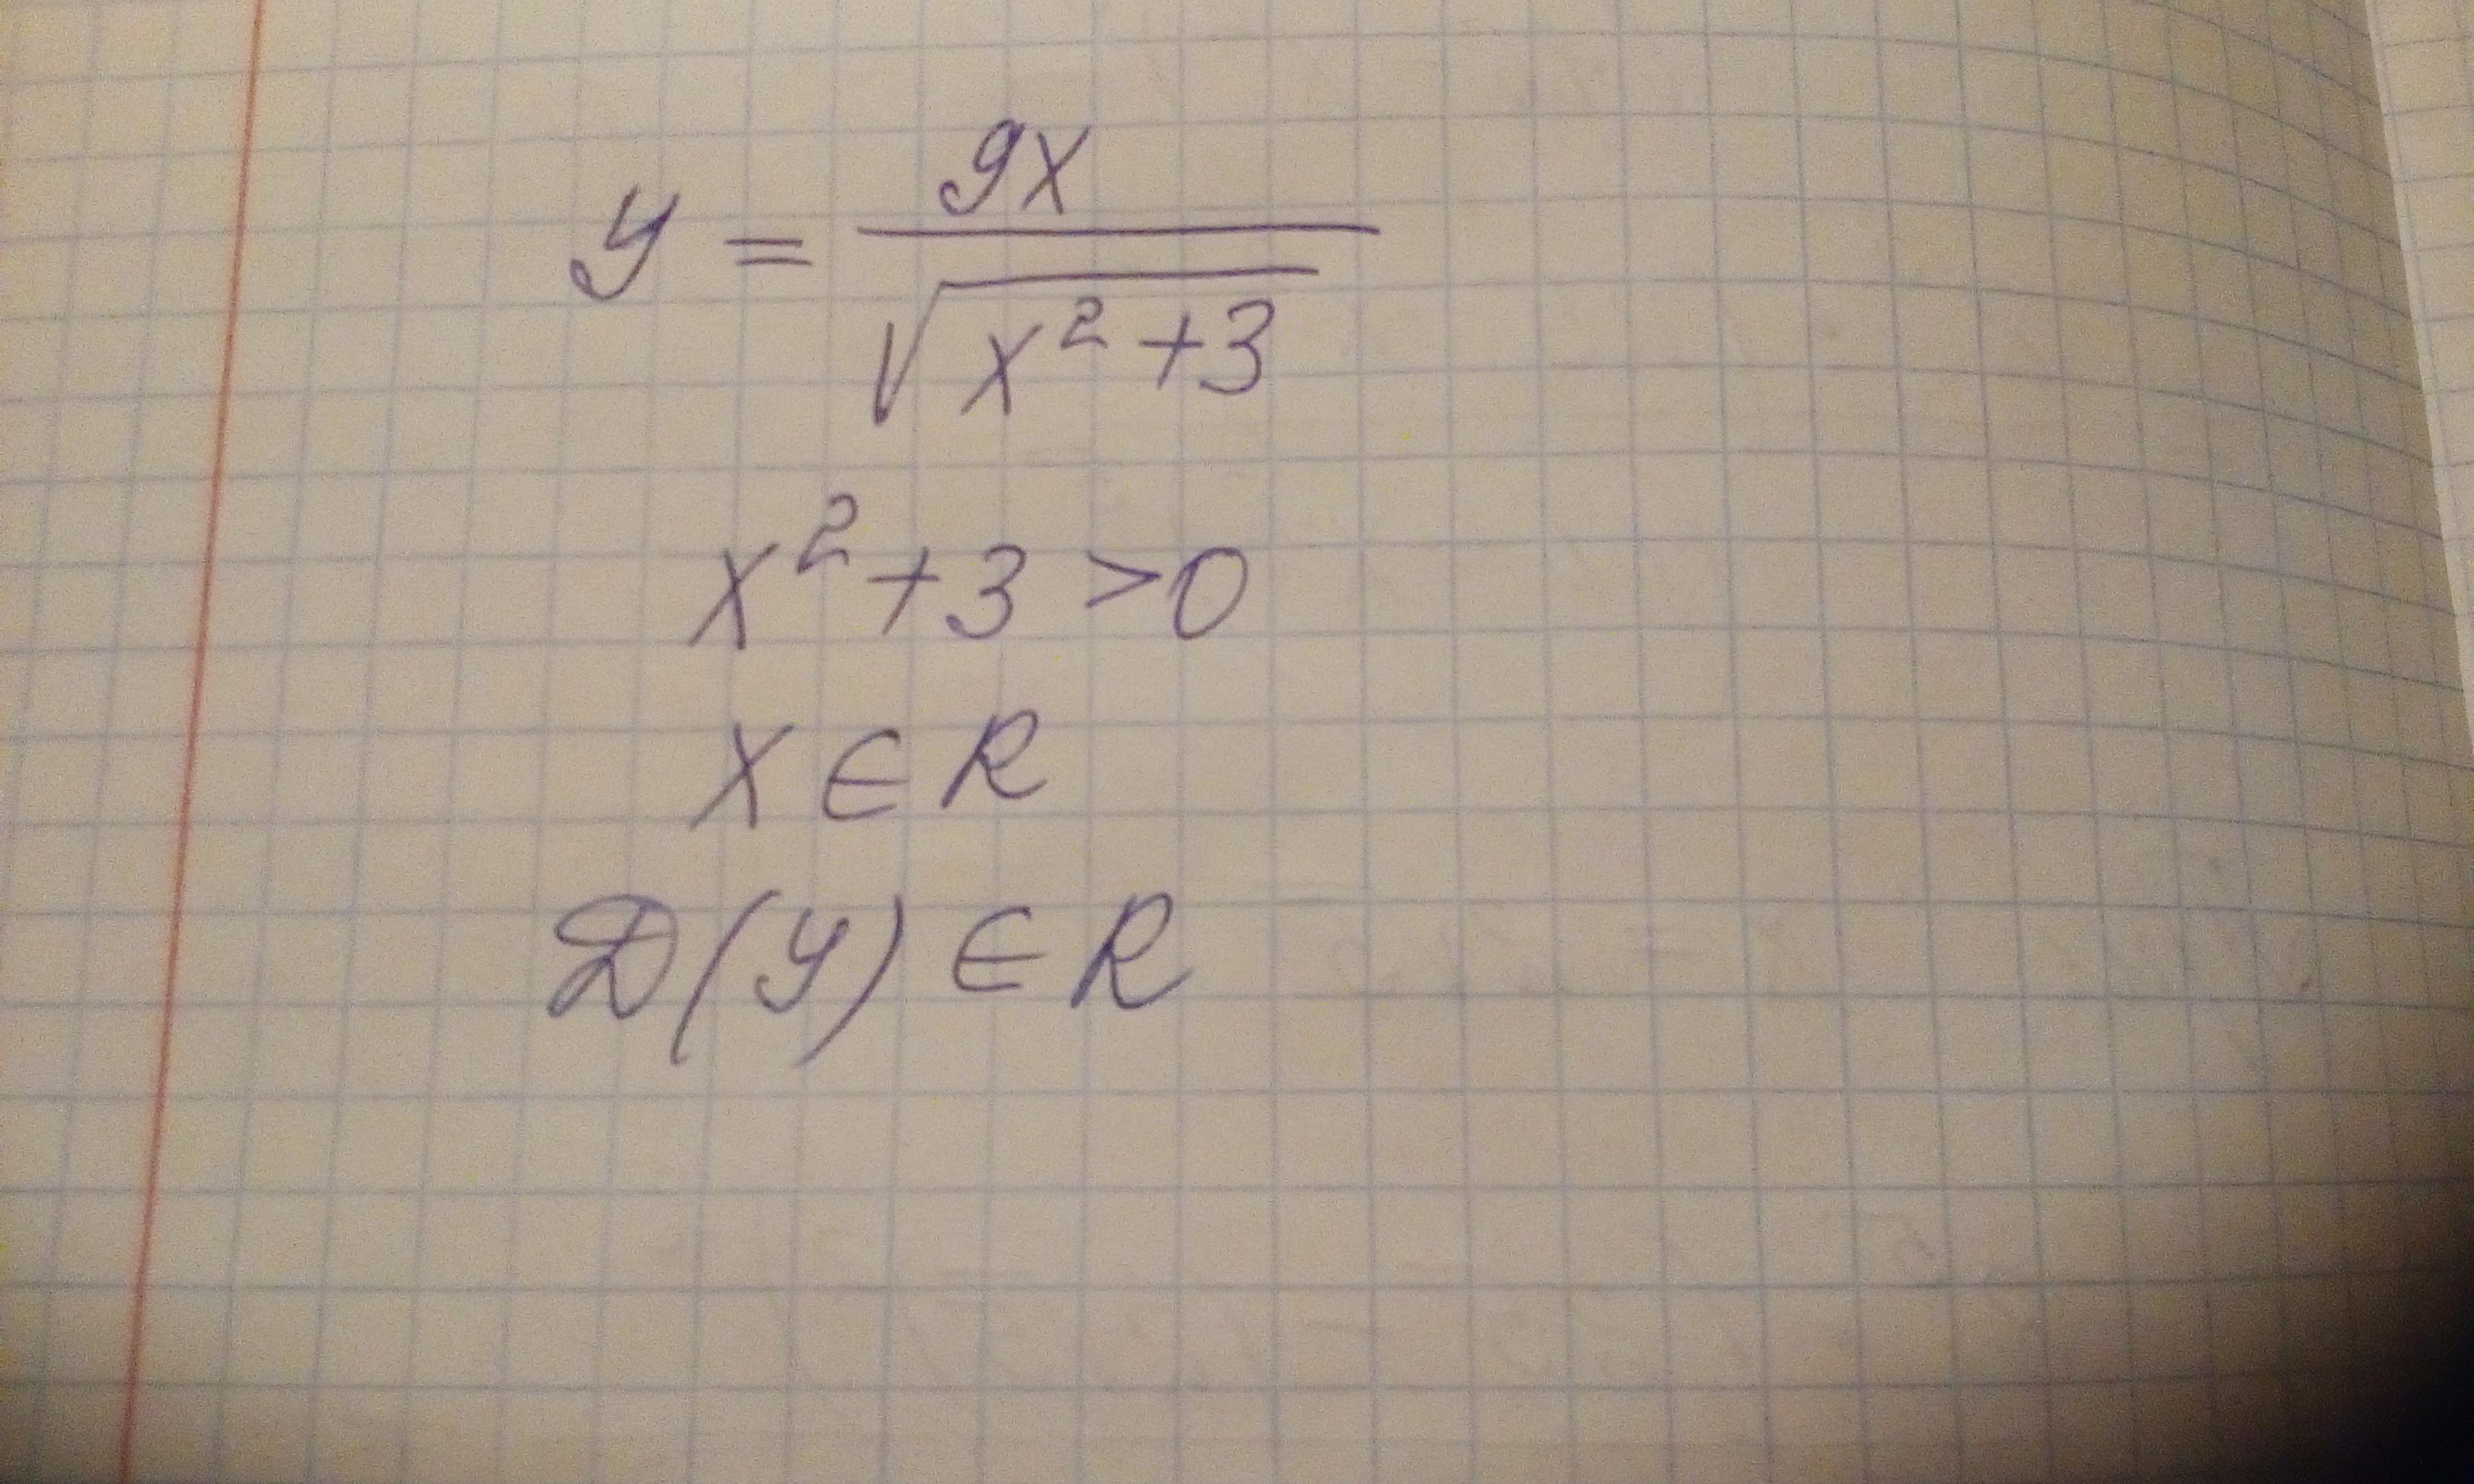 y = 9x / √(x² + 3)
x² + 3 > 0
x ∈ R
D(y) ∈ R